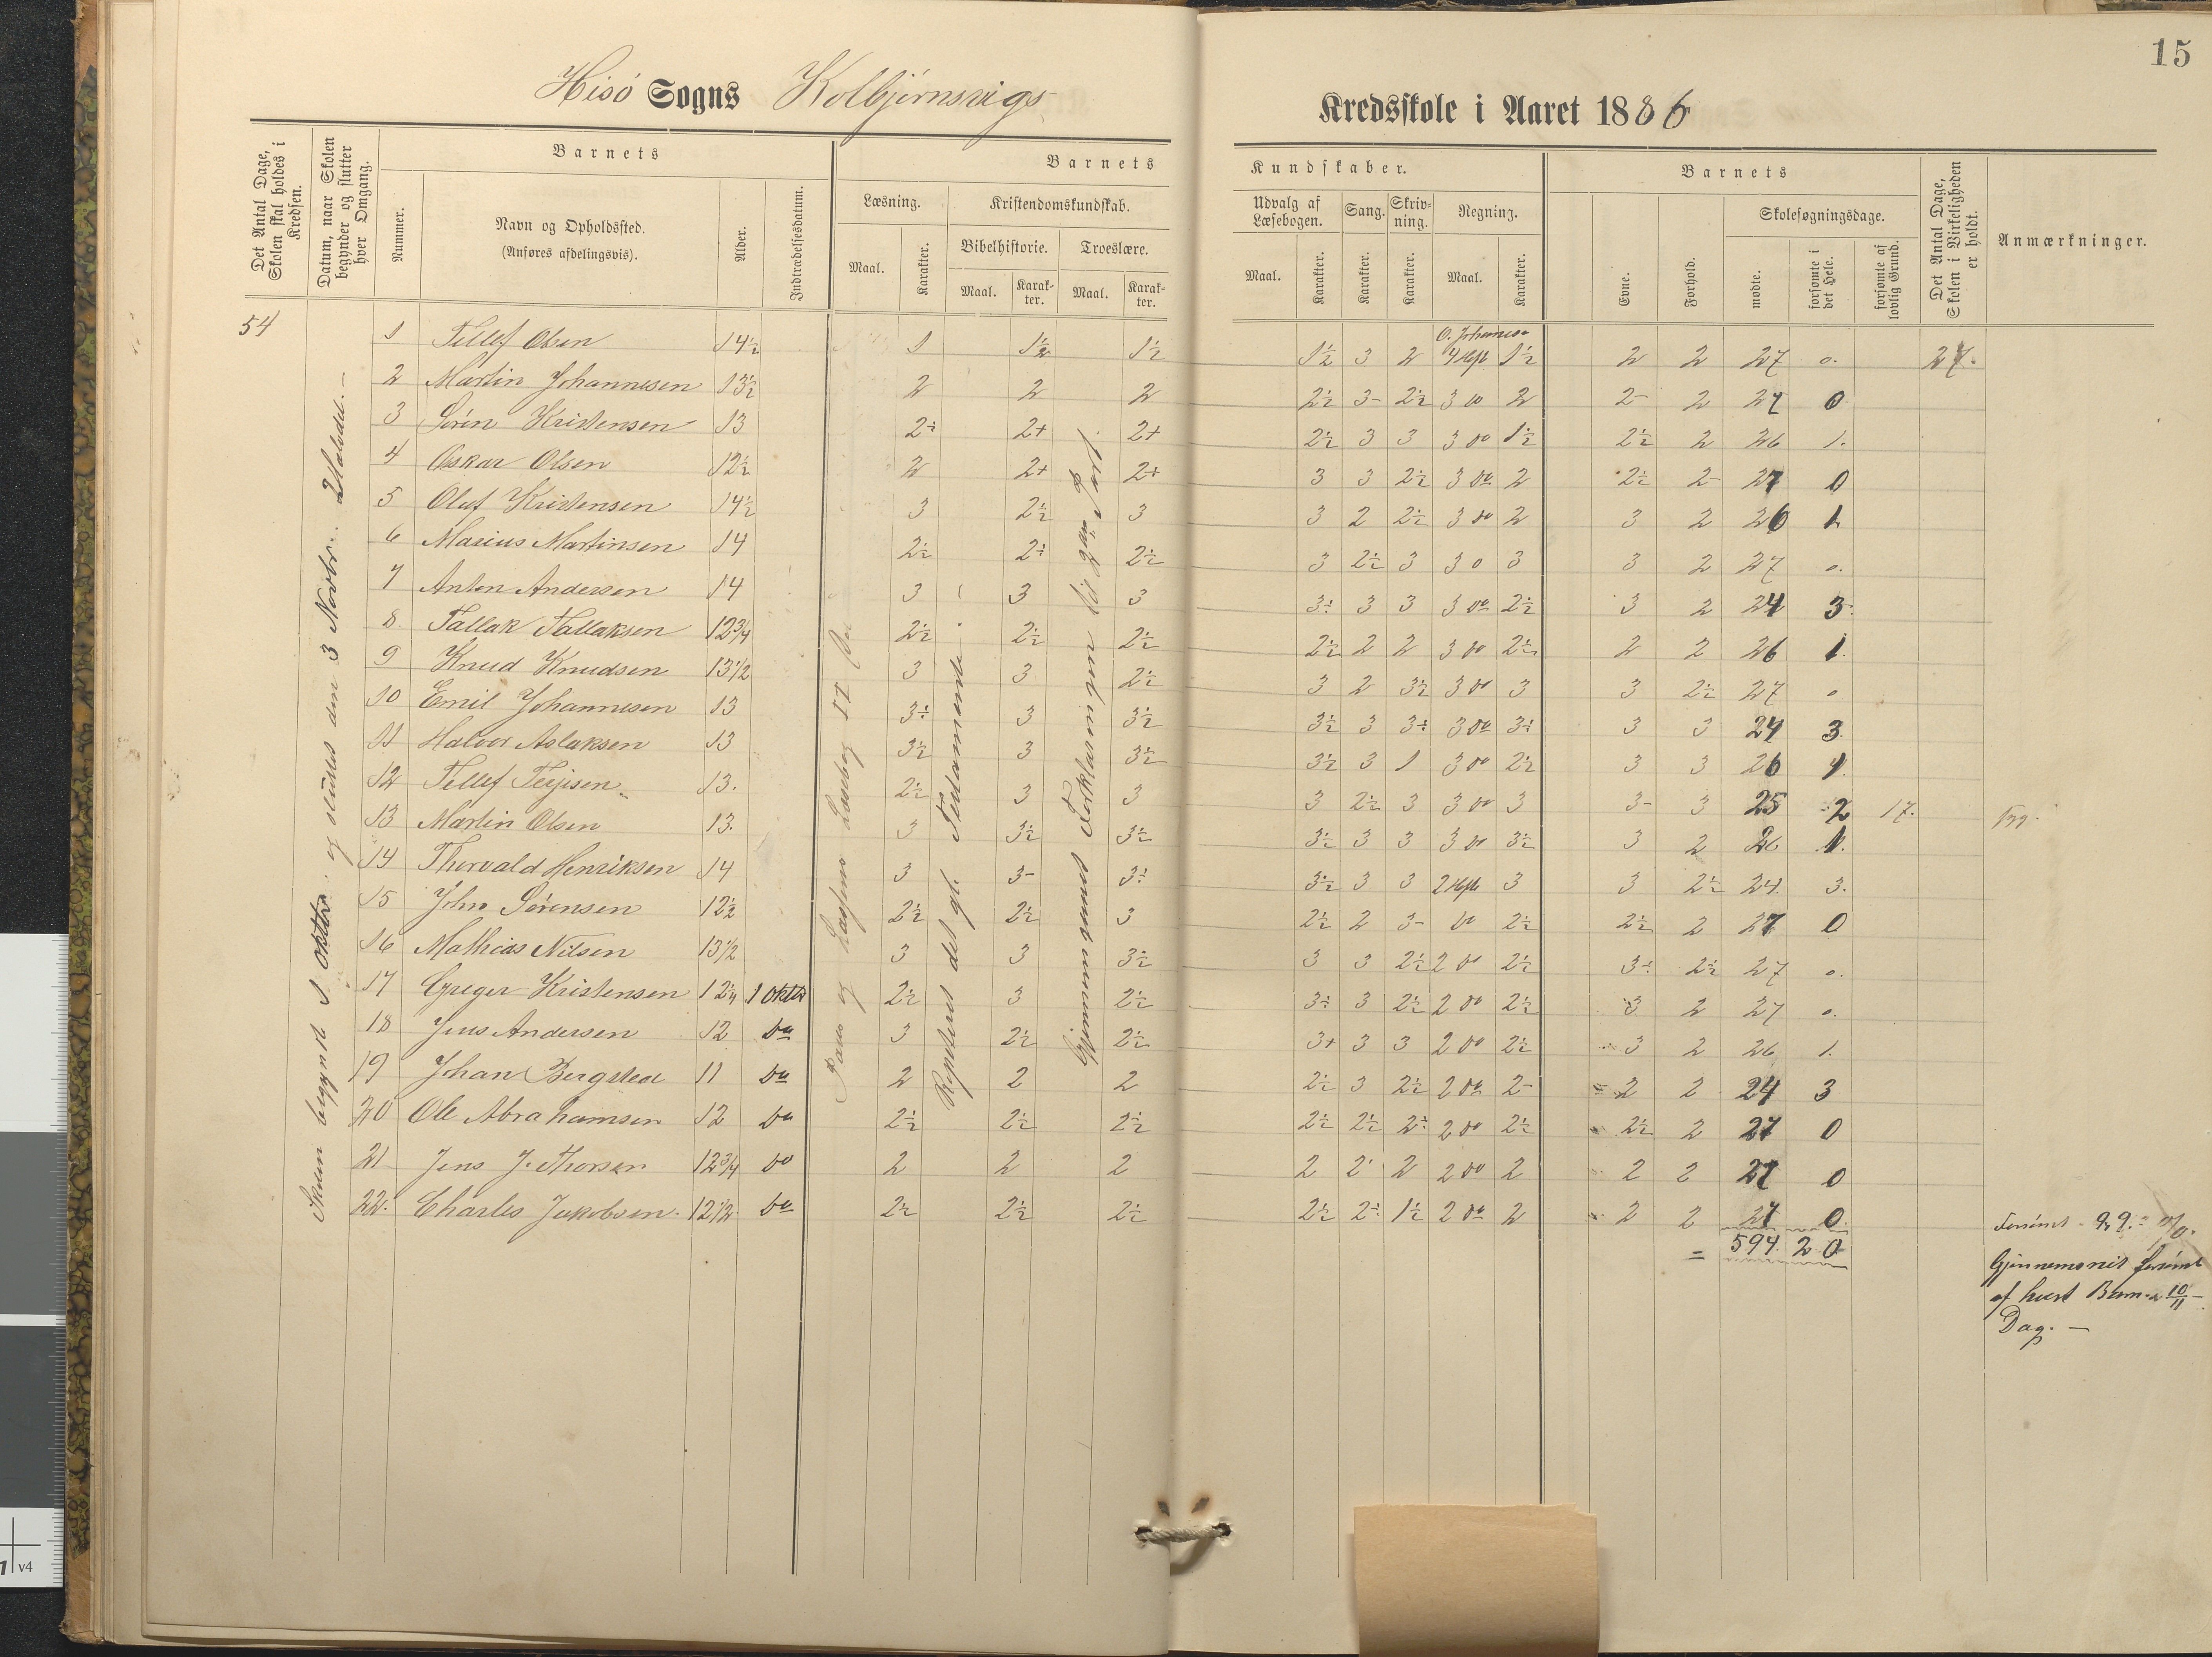 15
Hisö Sogns Kolbjörnsvigs Kredsskole i Aaret 1886
Det Antal Dage, Skolen skal holdes i Kredsen.
Datum, naar Skolen begynder og slutter hver Omgang.
Barnets
Nummer.
Navn og Opholdssted.
(Anføres afdelingsvis).
Alder.
Indtrædelsesdatum.
Barnets Kundskaber.
Læsning.
Maal.
Karakter.
Kristendomskundskab.
Bibelhistorie.
Maal.
Karakter.
Troeslære.
Maal.
Karakter.
Udvalg af Læsebogen.
Maal.
Karakter.
Sang.
Karakter.
Skrivning.
Karakter.
Regning.
Maal.
Karakter.
Barnets
Evne.
Forhold.
Skolesøgningsdage.
mødte.
forsømte i det Hele.
forsømte af lovlig Grund.
Det Antal Dage, Skolen i Virkeligheden er holdt.
Anmærkninger.
54
Skolen begyndte 1 Oktbr. og sluttes den 3 Novbr. 2 Halvdel. —
Læsebog
Repeteret det gl. Testamente.
Gjennemgaaet Forklaringen til 2den Part
O. Johannesen
1 Tellef Olsen 14½ 1 1½ 1½ 1½ 3 2 4 Hft 1½ 2 2 27 0. 27.
2 Martin Johannesen 13½ 2 2 2 2½ 3- 2½ 3 do 2 2- 2 27 0
3 Sörén Kristensen 13 2÷ 2+ 2+ 2½ 3 3 3 do 1½ 2½ 2 26 1.
4 Oskar Olsen 12½ 2 2+ 2+ 3 3 2½ 3 do 2 2½ 2- 27 0
5 Oluf Kristensen 14½ 3 2½ 3 3 2 2½ 3 do 2 3 2 26 1
6 Marius Martinsen 14 2½ 2÷ 2½ 3 2½ 3 3 0 3 3 2 27 0.
7 Anton Andersen 14 3 3 3 3÷ 3 3 3 do 2½ 3 2 24 3
8 Tallak Tallaksen 12¾ 2½ 2½ 2½ 2½ 2 2 3 do 2½ 2 2 26 1.
9 Knud Knudsen 13½ 3 3 2½ 3 2 3½ 3 do 3 3 2½ 27 0
10 Emil Johannesen 13 3÷ 3 3½ 3½ 3 3÷ 3 do 3÷ 3 3 24 3.
11 Halvor Aslaksen 13 3½ 3 3½ 3½ 3 1 3 do 2½ 3 3 26 1.
12 Tellef Terjisen 13. 2½ 3 3 3 2½ 3 3 do 3 3- 3 25 2 17.
13 Martin Olsen 13. 3 3½ 3½ 3½ 3 3 3 do 3½ 3 2 26 1.
14 Thorvald Henriksen 14 3 3- 3÷ 3½ 3 3 2 Hft 3 3 2½ 24 3.
15 John Sörensen 12½ 2½ 2½ 3 2½ 2 3- do 2½ 2½ 2 27 0
16 Mathias Nilsen 13½ 3 3 3½ 3 3 2½ 2 do 2½ 3÷ 2½ 27 0.
17 Greger Kristensen 12¼ 1 Oktbr 2½ 3 2½ 3÷ 3 2½ 2 do 2½ 3 2 27 0.
18 Jens Andersen 12 do 3 2½ 2½ 3+ 3 3 2 do 2½ 3 2 26 1.
19 Johan Bergsted 11 do 2 2 2 2½ 3 2½ 2 do 2- 2 2 24 3
20 Ole Abrahamsen 12 do 2½ 2½ 2½ 2½ 2½ 2÷ 2 do 2½ 2½ 2 27 0
21 Jens J. Thorsen 12¾ do 2 2 2 2 2 2 2 do 2 2 2 27 0
22. Charles Jakobsen. 12½ do 2½ 2½ 2½ 2½ 2÷ 1½ 2 do 2 2 2 27 0.
= 594 20
Forsömt
Gjennemsnit forsömt
af hvert Barn = 10/11 —
Dag. —